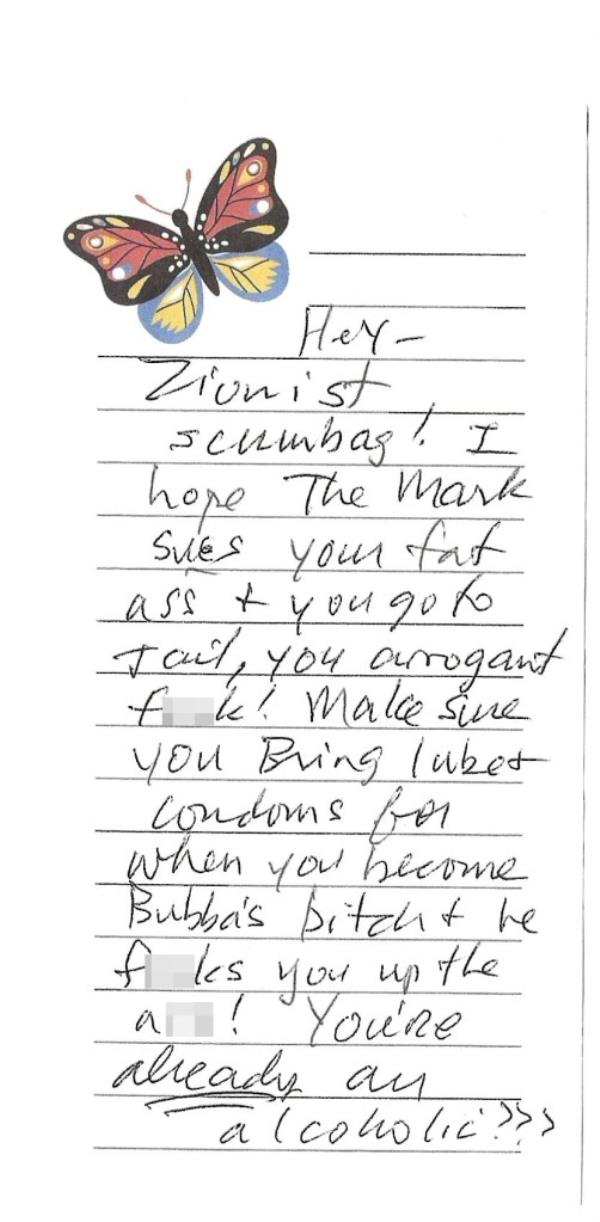 Hey-
Zionist
scumbag! I
hope The Mark
sues your fat
ass + you go to
Jail, you arrogant
f k! Make sure
you Bring lube +
condoms for
when you become
Bubba's bitch + he
f ks you up the
a ! You're
already an
alcoholic???